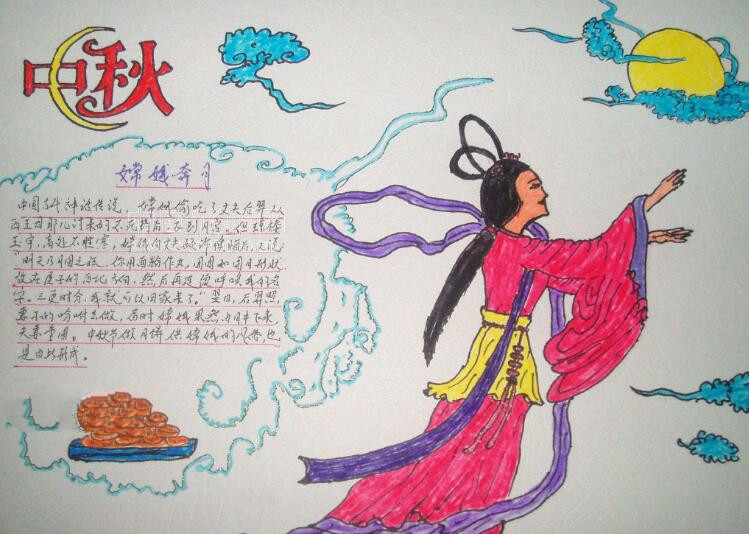 中秋
嫦娥奔月
中国古代神话传说，嫦娥偷吃了丈夫后羿从
西王母那儿讨来的不死药后，飞到月宫。但琼楼
玉宇，高处不胜寒，嫦娥向丈夫倾诉懊悔后，又说：
"明天乃月圆之候，你用面粉作丸，团团如圆月形状，
放在屋子的西北方向，然后再连续呼唤我的名
字。三更时分，我就可以回家来了。"翌日，后羿照
妻子的吩咐去做，届时嫦娥果然由月中下来，
夫妻重圆。中秋节做月饼供嫦娥的风俗，也
是由此形成。